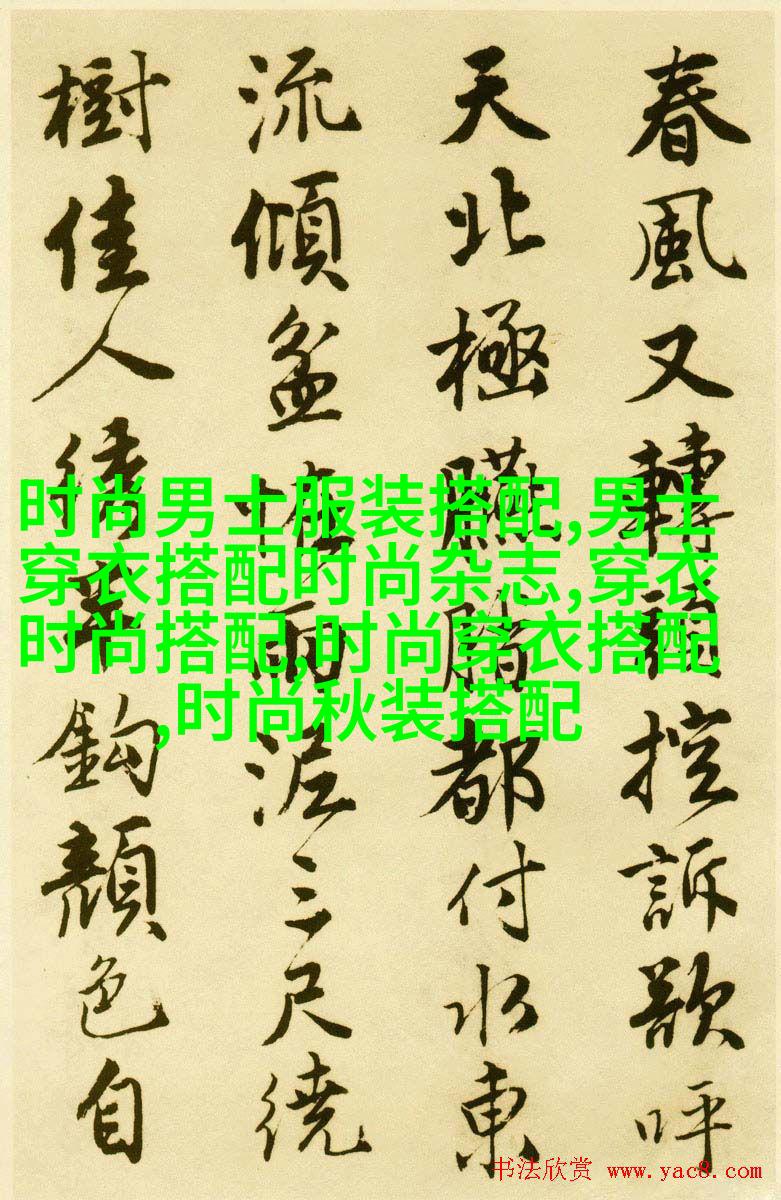 春風又轉頭控訴欲呼
天北極臙脂都付水東
流傾盆怪雨泥三尺繞
樹佳人繡半鉤顏色自
时尚男士服装搭配,男士
穿衣搭配时尚杂志,穿衣
时尚搭配,时尚穿衣搭配
,时尚秋装搭配
书法欣赏 www.yac8.com